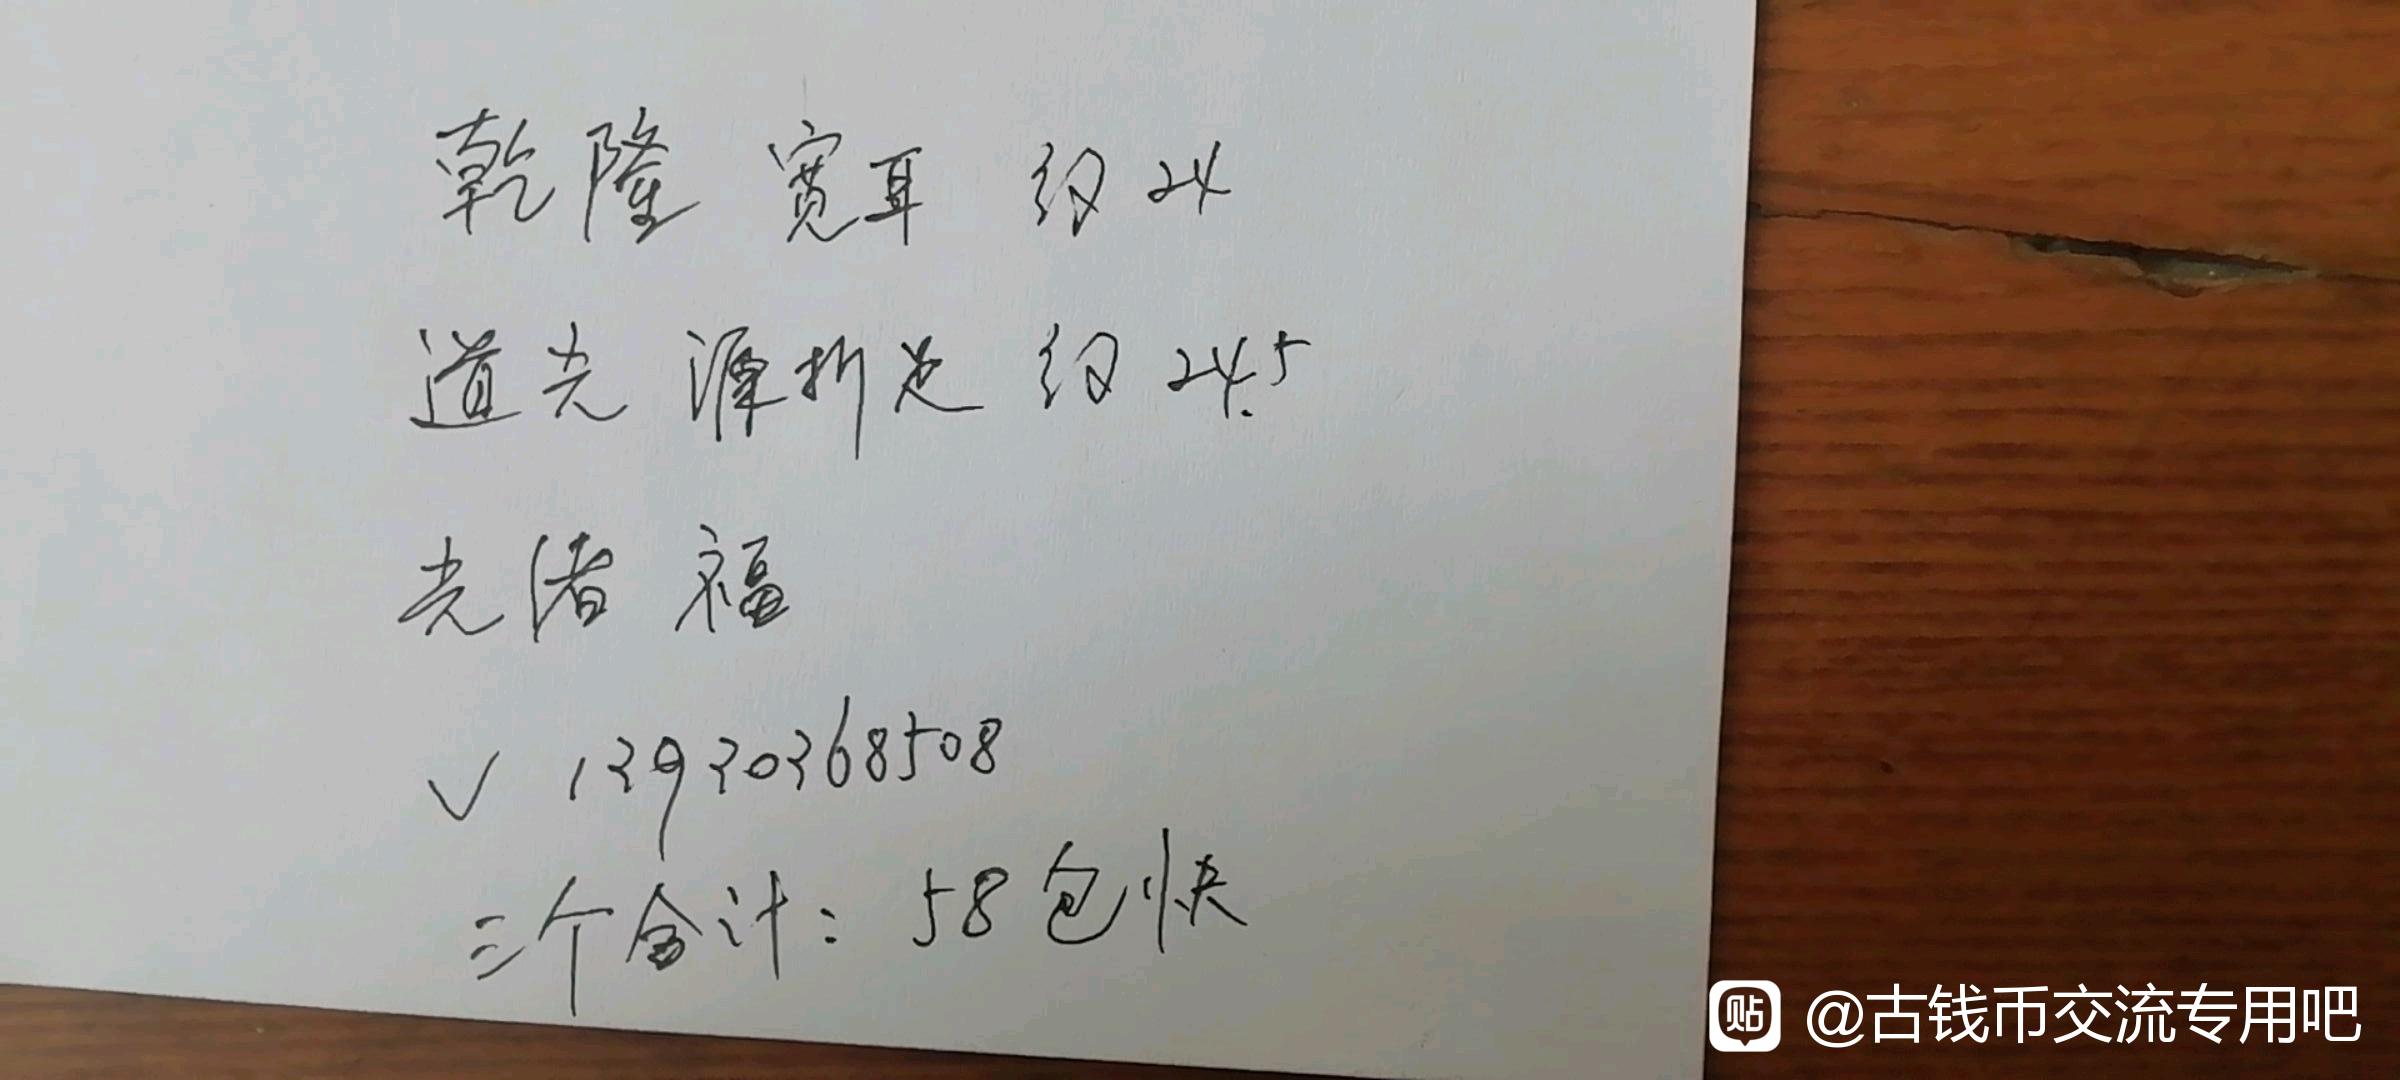 乾隆 宽耳 约24
道光 源折足 约24.5
光绪 福
√ 13920368508
三个合计：58包快
贴 @古钱币交流专用吧